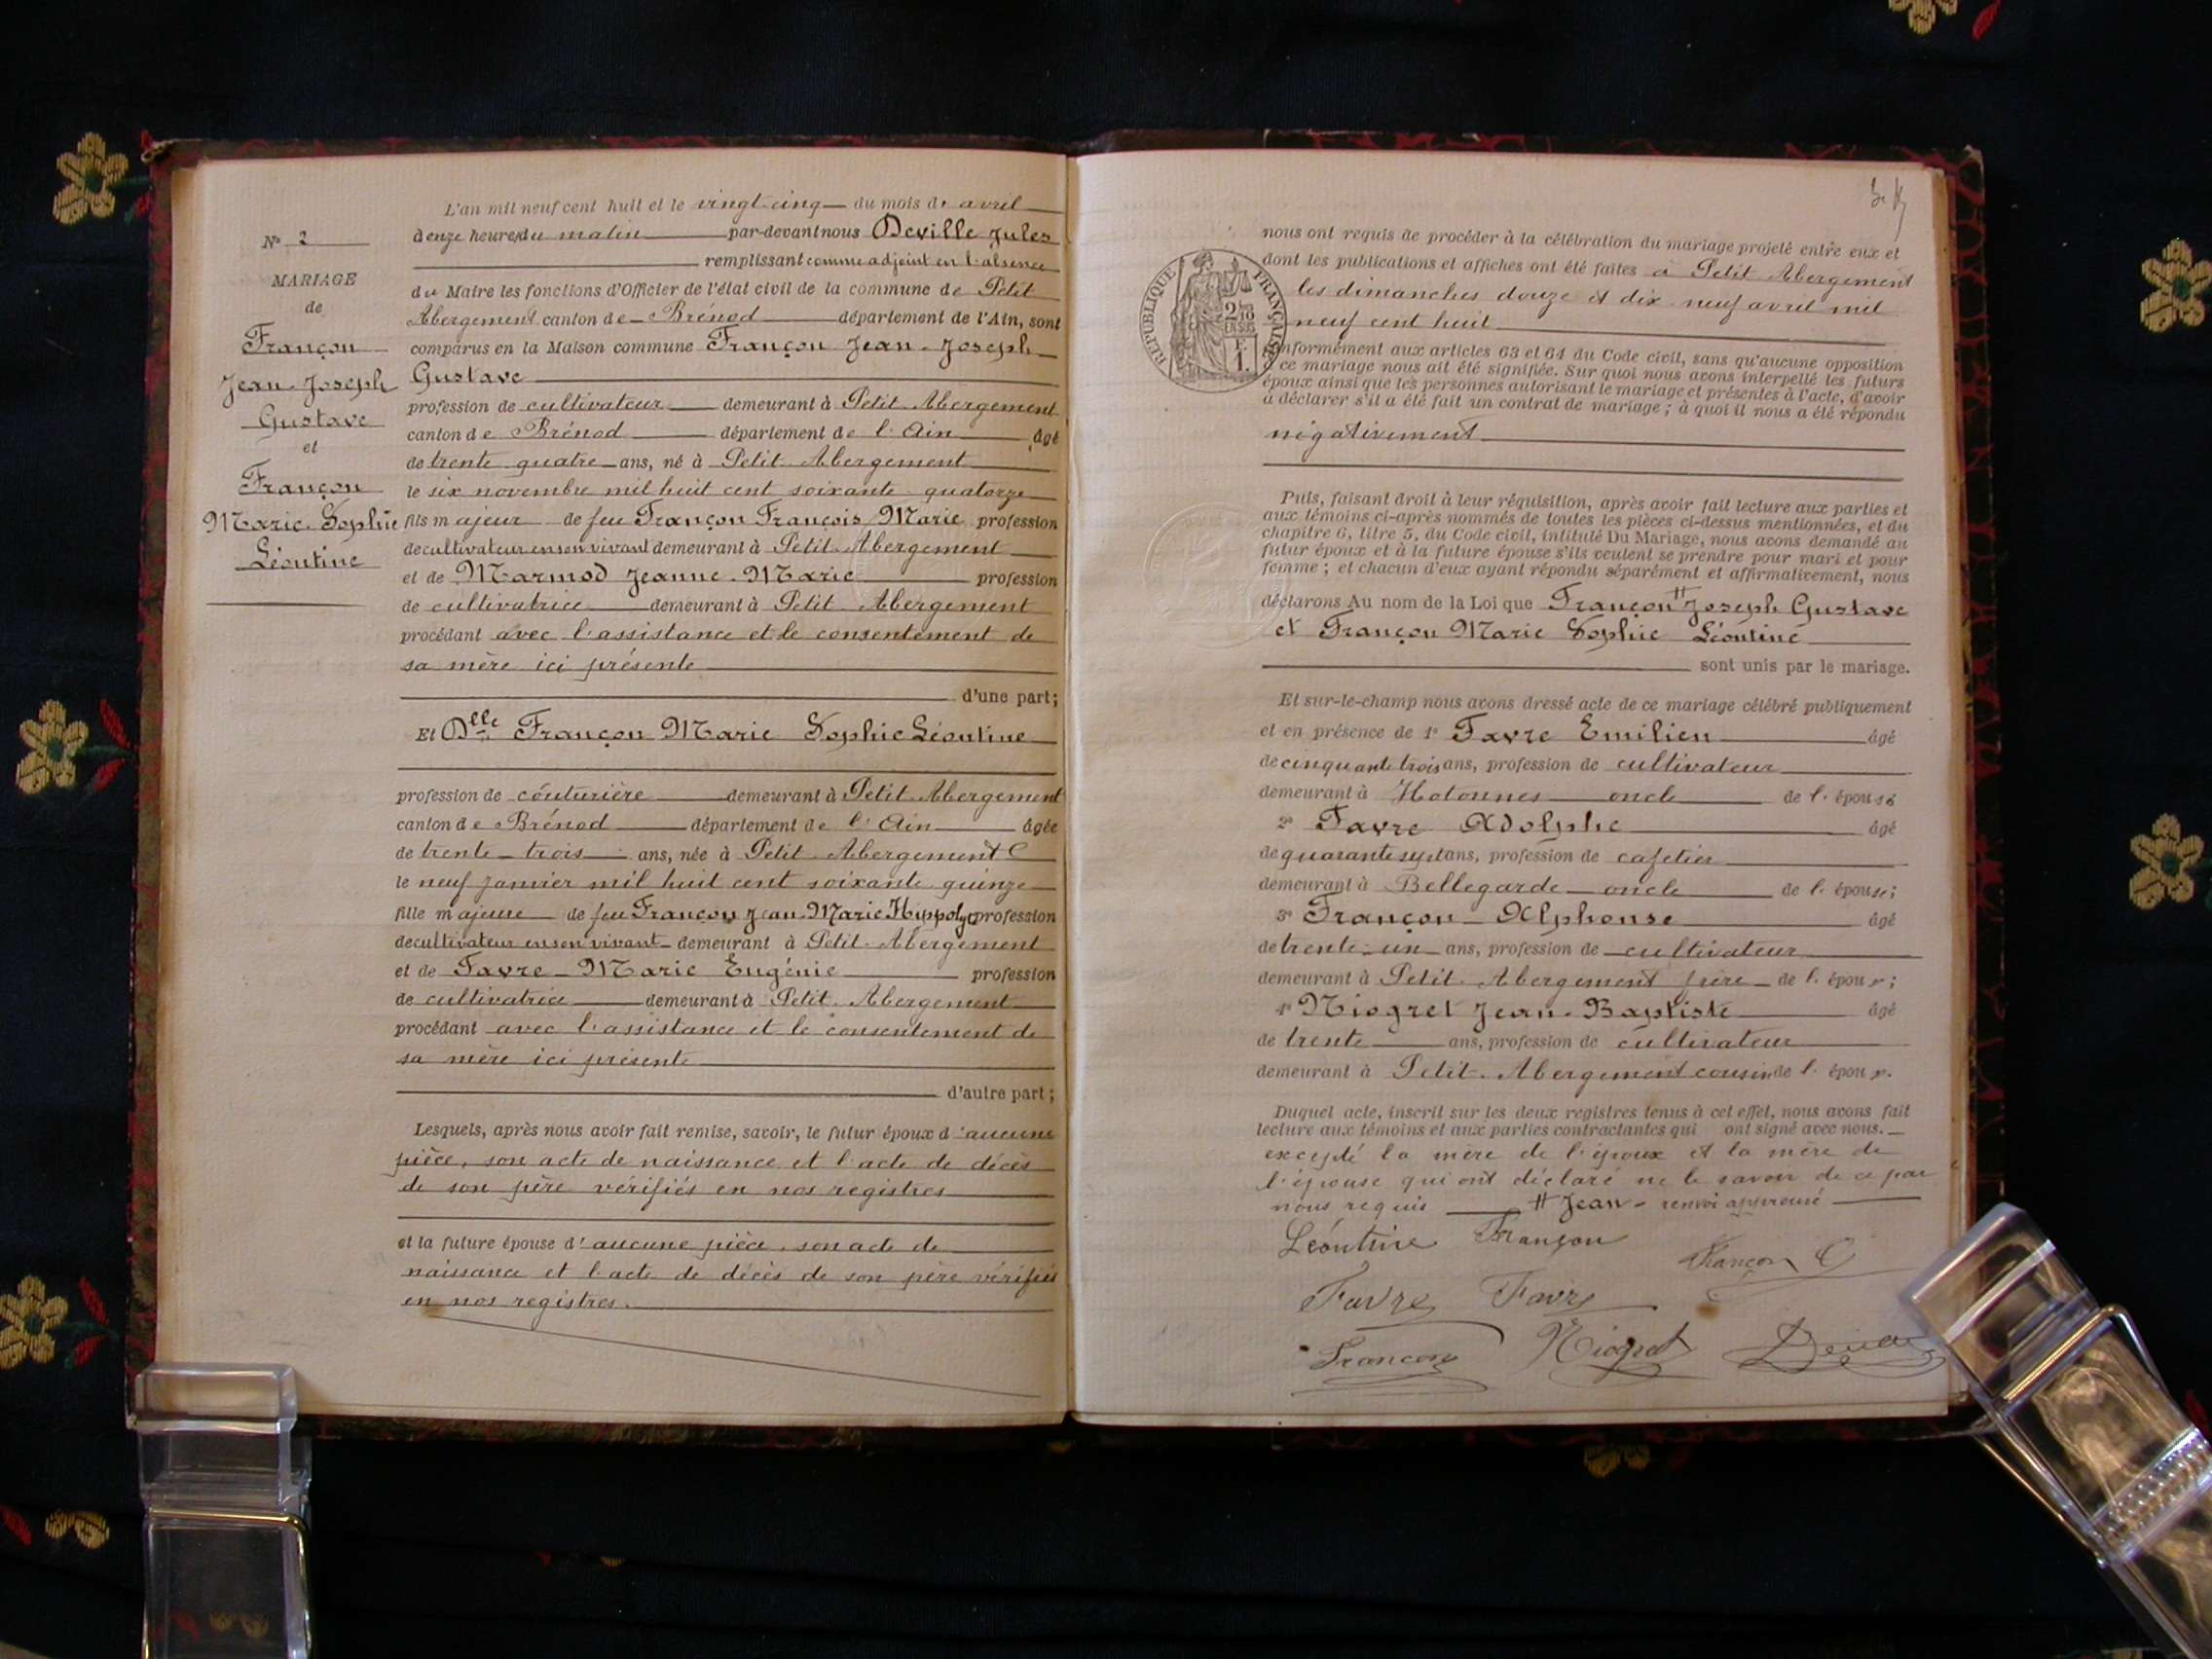 L'an mil neuf cent huit et le vingt-cinq du mois de avril
N° 2
à onze heures du matin par-devant nous Deville Jules
remplissant comme adjoint en l'absence
MARIAGE
de
Françon
Jean-Joseph
Gustave
et
Françon
Marie Sophie
Léontine
du Maire les fonctions d'Officier de l'état civil de la commune de Petit
Abergement canton de Brénod département de l'Ain, sont
comparus en la Maison commune Françon Jean-Joseph
Gustave
profession de cultivateur demeurant à Petit-Abergement
canton de Brénod département de l'Ain âgé
de trente quatre ans, né à Petit-Abergement
le six novembre mil huit cent soixante quatorze
fils majeur de feu Françon François Marie profession
de cultivateur en son vivant demeurant à Petit-Abergement
et de Marmod Jeanne-Marie profession
de cultivatrice demeurant à Petit-Abergement
procédant avec l'assistance et le consentement de
sa mère ici présente
d'une part;
Et Dlle Françon Marie Sophie Léontine
profession de couturière demeurant à Petit-Abergement
canton de Brénod département de l'Ain âgée
de trente-trois ans, née à Petit-Abergement
le neuf janvier mil huit cent soixante quinze
fille majeure de feu Françon Jean-Marie Hippolyte profession
de cultivateur en son vivant demeurant à Petit-Abergement
et de Favre-Marie Eugénie profession
de cultivatrice demeurant à Petit-Abergement
procédant avec l'assistance et le consentement de
sa mère ici présente
d'autre part;
Lesquels, après nous avoir fait remise, savoir, le futur époux d'aucune
pièce, son acte de naissance et l'acte de décès
de son père vérifiés en nos registres
et la future épouse d'aucune pièce, son acte de
naissance et l'acte de décès de son père vérifiés
en nos registres.
RÉPUBLIQUE FRANÇAISE
2/10
EN SUS
F.
1.
nous ont requis de procéder à la célébration du mariage projeté entre eux et
dont les publications et affiches ont été faites à Petit Abergement
les dimanches douze et dix-neuf avril mil
neuf cent huit
conformément aux articles 63 et 64 du Code civil, sans qu'aucune opposition
à ce mariage nous ait été signifiée. Sur quoi nous avons interpellé les futurs
époux ainsi que les personnes autorisant le mariage et présentes à l'acte, d'avoir
à déclarer s'il a été fait un contrat de mariage; à quoi il nous a été répondu
négativement
Puis, faisant droit à leur réquisition, après avoir fait lecture aux parties et
aux témoins ci-après nommés de toutes les pièces ci-dessus mentionnées, et du
chapitre 6, titre 5, du Code civil, intitulé Du Mariage, nous avons demandé au
futur époux et à la future épouse s'ils veulent se prendre pour mari et pour
femme; et chacun d'eux ayant répondu séparément et affirmativement, nous
déclarons Au nom de la Loi que Françon # Joseph Gustave
et Françon Marie Sophie Léontine
sont unis par le mariage.
Et sur-le-champ nous avons dressé acte de ce mariage célébré publiquement
et en présence de 1° Favre Emilien âgé
de cinquante trois ans, profession de cultivateur
demeurant à Hotonnes oncle de l'épouse
2° Favre Adolphe âgé
de quarante sept ans, profession de cafetier
demeurant à Bellegarde oncle de l'épouse;
3° Françon-Alphonse âgé
de trente-un ans, profession de cultivateur
demeurant à Petit-Abergement frère de l'époux;
4° Niogret Jean-Baptiste âgé
de trente ans, profession de cultivateur
demeurant à Petit-Abergement cousin de l'époux.
Duquel acte, inscrit sur les deux registres tenus à cet effet, nous avons fait
lecture aux témoins et aux parties contractantes qui ont signé avec nous.
excepté la mère de l'époux et la mère de
l'épouse qui ont déclaré ne le savoir de ce par
nous requis # Jean - renvoi approuvé
Léontine Françon
Françon G
Favre Favre
Françon Niogret Deville